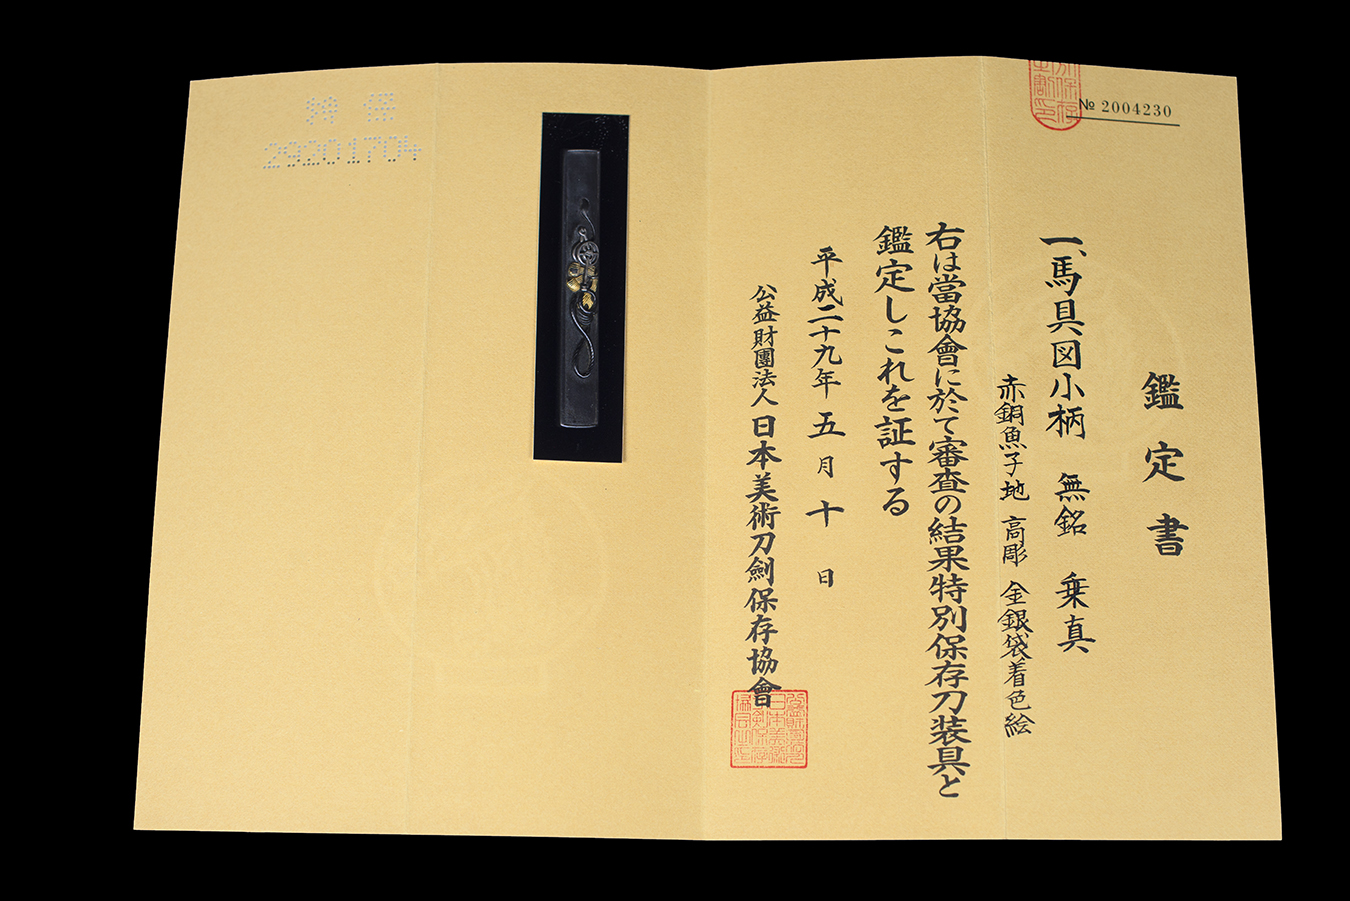 № 2004230
鑑定書
一、馬具図小柄 無銘 乗真
赤銅魚子地 高彫 金銀袋着色絵
右は當協會に於て審査の結果特別保存刀装具と
鑑定しこれを証する
平成二十九年 五月 十日
公益財團法人 日本美術刀劍保存協會
特 保
29201704